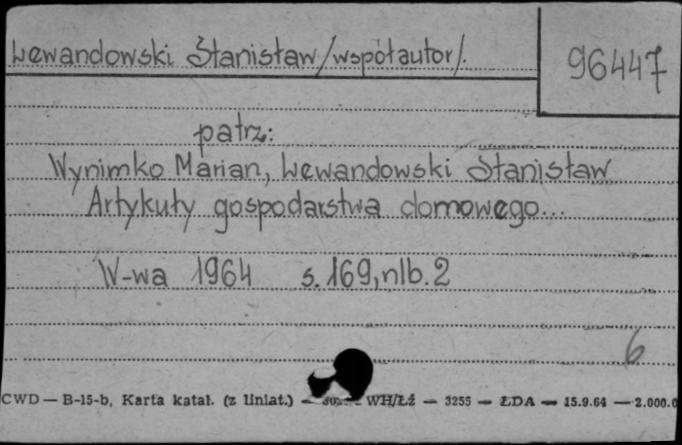 Lewandowski Stanisław /współautor/.
96447
patrz:
Wynimko Marian, Lewandowski Stanisław
Artykuły gospodarstwa domowego...
W-wa 1964 s. 169, nlb. 2
6
CWD — B-15-b, Karta katal. (z liniat.) — WH/Łź — 3255 — ŁDA — 15.9.64 — 2.000.0